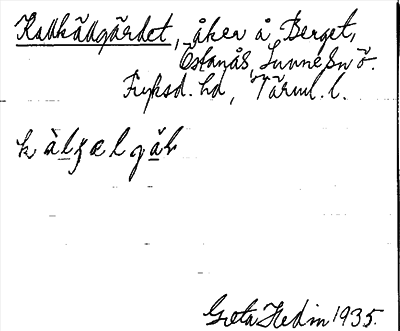 Kallkällgärdet, åker å Berget,
Östanås, Sunne sn ö.
Fryksd. hd, Värml. l.
kàlҫælgä̀ḷ
Greta Hedin 1935.